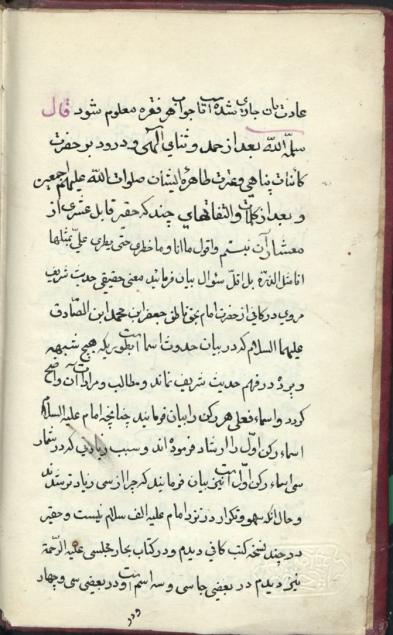 عادت بان جاری شده است تا جواب هر فقره معلوم شود قال
سلّمه اللّه بعد از حمد و ثنای الهی و درود بر حضرت
کائنات پناهی و عترت طاهرهٔ ایشان صلوات اللّه علیهم اجمعین
و بعد از کلمات و التفاتهای چند که حقیر قابل عشری از
معشار آن نیستم و اقول ما انا و ما خطری حتّی یطری علیّ بمثلها
انا مثل الذرّة بل اقلّ سؤال بیان فرمائید معنی حقیقی حدیث شریف
مروی در کافی از حضرت امام بحق ناطق جعفر ابن محمد ابن الصّادق
علیهما السلام که در بیان حدوث اسما است بطوریکه هیچ شبهه
و بردهٔ در فهم حدیث شریف نماند و مطالب و مرادات آن واضح
کردد و اسماء فعلی هر رکن را بیان فرمائید چنانچه امام علیه السلام
اسماء رکن اوّل را ارشاد فرموده اند و سبب زیادتی که در شمار
سی اسماء رکن اوّل است نیز بیان فرمائید که چرا از سی زیادتر شده‌اند
و حال آنکه سهو و تکرار در نزد امام علیه الف سلام نیست و حقیر
در چند نسخه کتب کافی دیدم و در کتاب بحار مجلسی علیه الرّحمة
نیز دیدم در بعضی جا سی و سه اسم است و در بعضی سی و چهار
و در